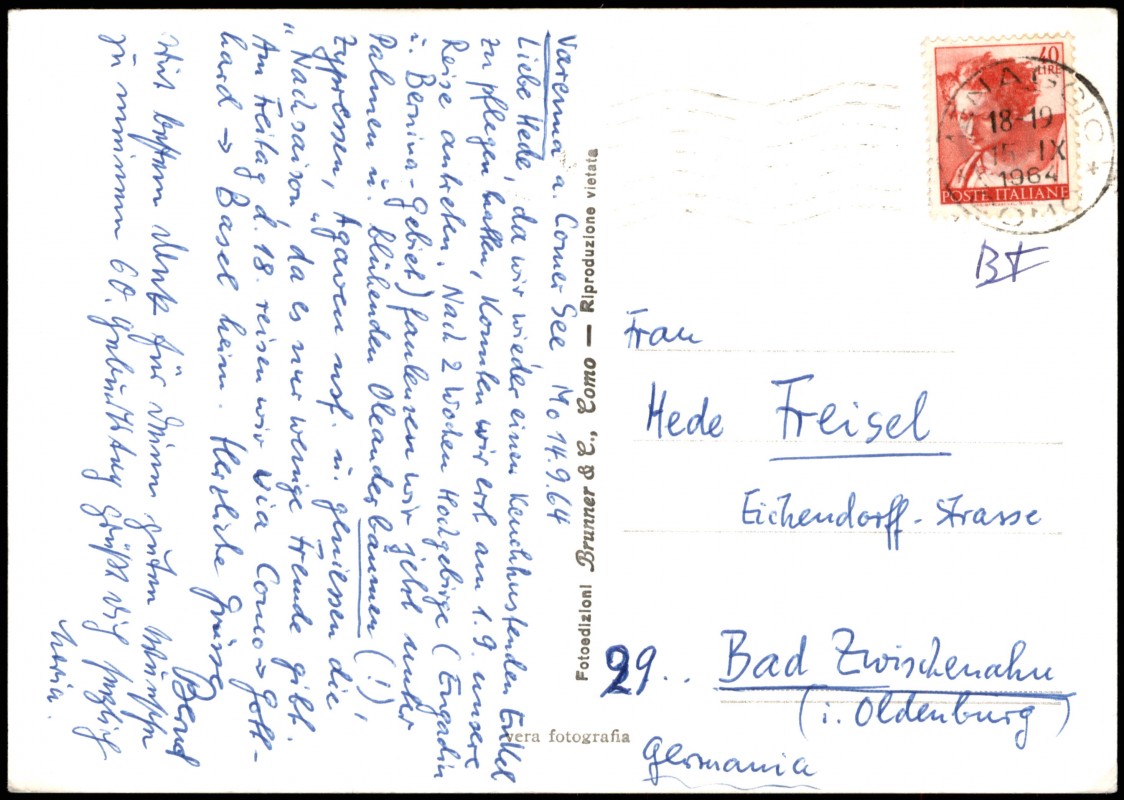 Varenna a. Comer See Mo 14.9.64
Liebe Hede, da wir wieder einen keuchhustenden Enkel
zu pflegen hatten, konnten wir erst am 1.9. unsere
Reise antreten. Nach 2 Wochen Hochgebirge (Engadin
u. Bernina-Gebiet) faulenzen wir jetzt unter
Palmen u. blühenden Oleanderbäumen (!),
Zypressen, Agaven usf. u. geniessen die
„Nachsaison", da es nur wenige Fremde gibt.
Am Freitag d. 18. reisen wir via Como → Gott-
hard → Basel heim. Herzliche Grüsse
Bernd
Mit bestem Dank für Deine guten Wünsche
zu meinem 60. Geburtstag grüßt Dich herzlich
Maria.
Fotoedizioni Brunner & C., Como — Riproduzione vietata
vera fotografia
40
LIRE
POSTE ITALIANE
18-19
15 IX
1964
COMO
BF
Frau
Hede Freisel
Eichendorff-Strasse
29.. Bad Zwischenahn
(i. Oldenburg)
Germania